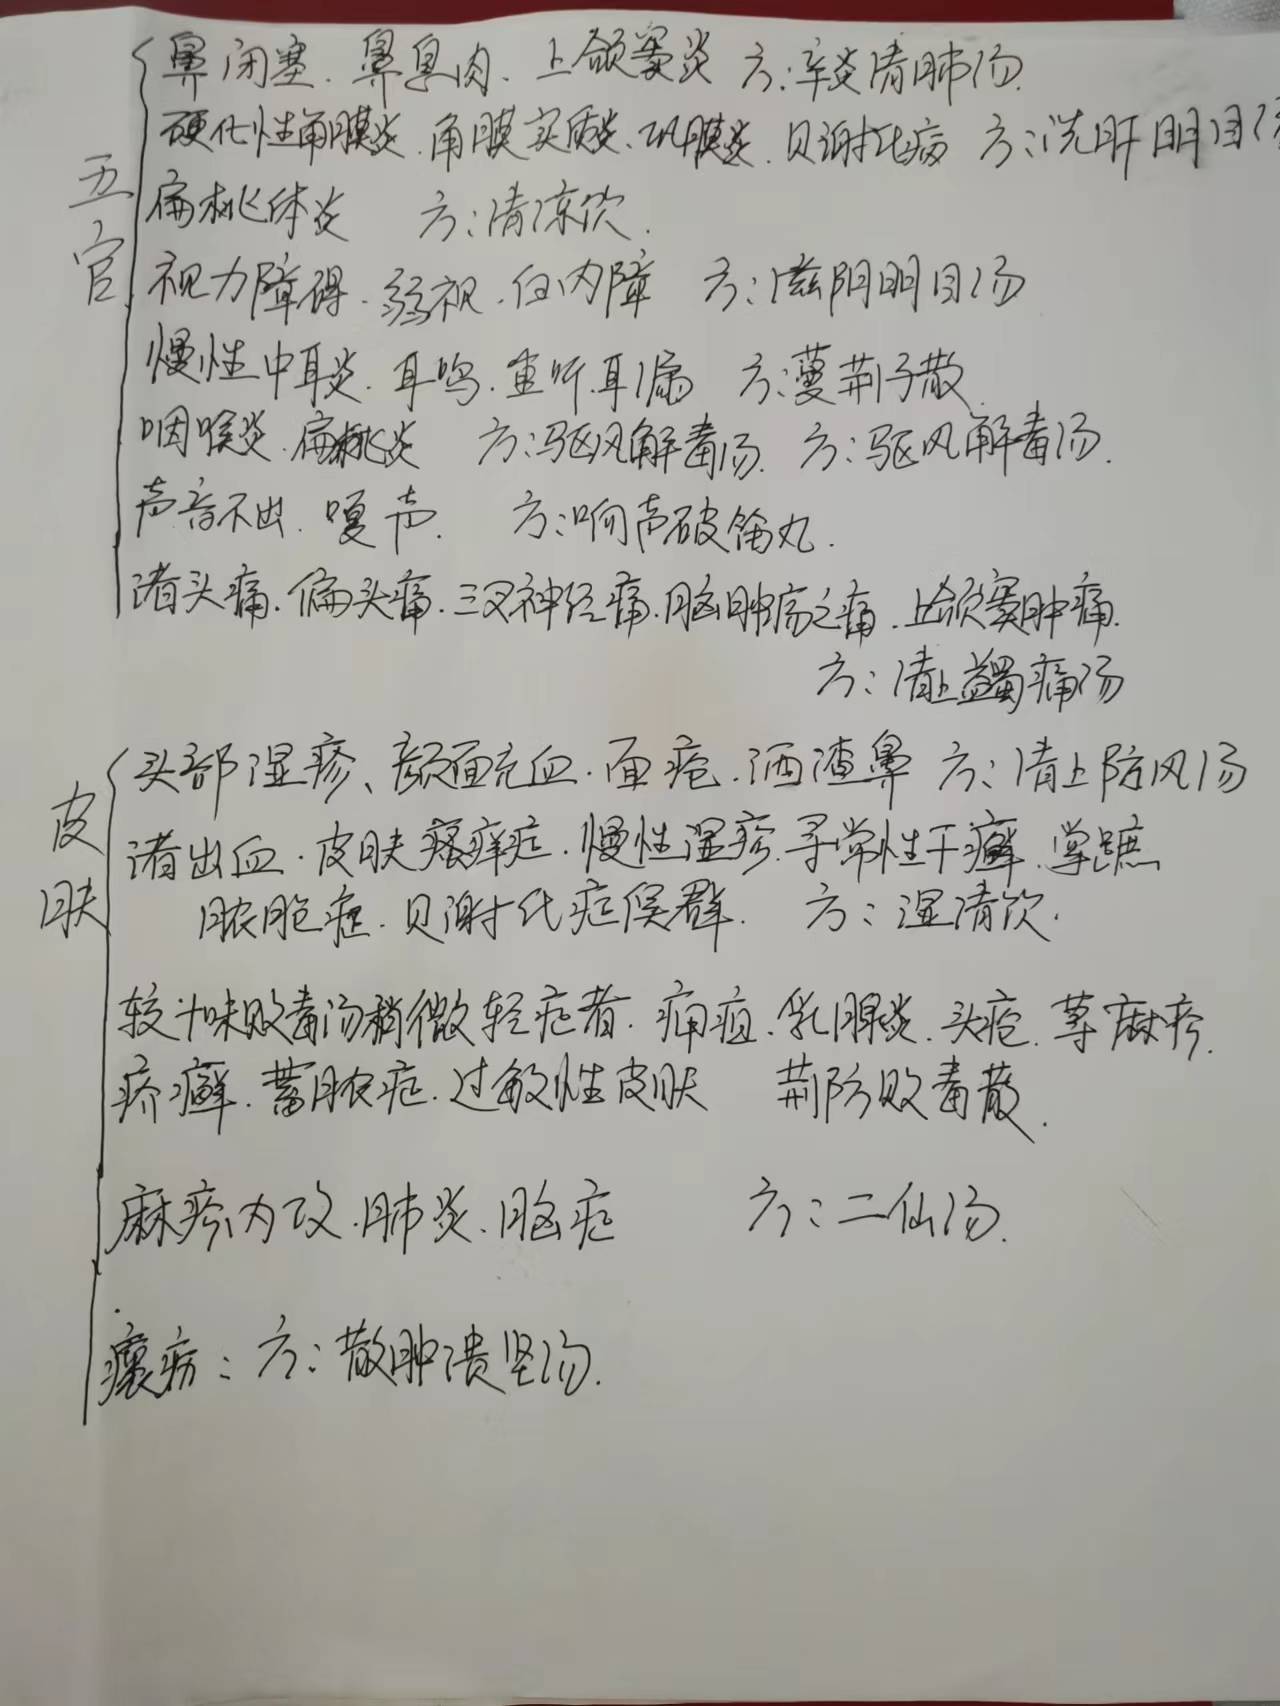 五官
鼻闭塞.鼻息肉.上颌窦炎 方:辛炎清肺汤.
硬化性角膜炎.角膜实质炎.巩膜炎.贝谢杜氏病 方:洗肝明目
扁桃体炎 方:清凉饮.
视力障碍.弱视.白内障 方:滋阴明目汤
慢性中耳炎.耳鸣.重听.耳漏 方:蔓荆子散.
咽喉炎.扁桃炎 方:驱风解毒汤. 方:驱风解毒汤.
声音不出.嘎声. 方:响声破笛丸.
诸头痛.偏头痛.三叉神经痛.脑肿疡之痛.上颌窦肿痛.
方:清上蠲痛汤
皮肤
头部湿疹、颜面充血.面疱.酒渣鼻 方:清上防风汤
诸出血.皮肤瘙痒症.慢性湿疹.寻常性干癣.掌蹠
脓胞症.贝谢杜氏症侯群. 方:湿清饮.
较十味败毒汤稍微轻症者.痈疽.乳腺炎.头疮.荨麻疹.
疥癣.蓄脓症.过敏性皮肤 荆防败毒散.
麻疹内攻.肺炎.脑症 方:二仙汤.
瘰疬:方:散肿溃坚汤.